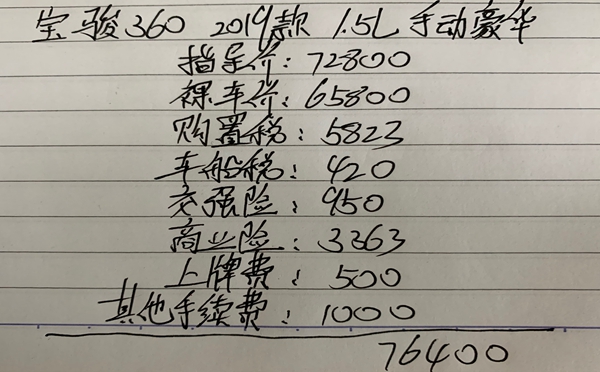 宝骏360 2019款 1.5L 手动豪华
指导价：72800
裸车价：65800
购置税：5823
车船税：420
交强险：950
商业险：3363
上牌费：500
其他手续费：1000
76400